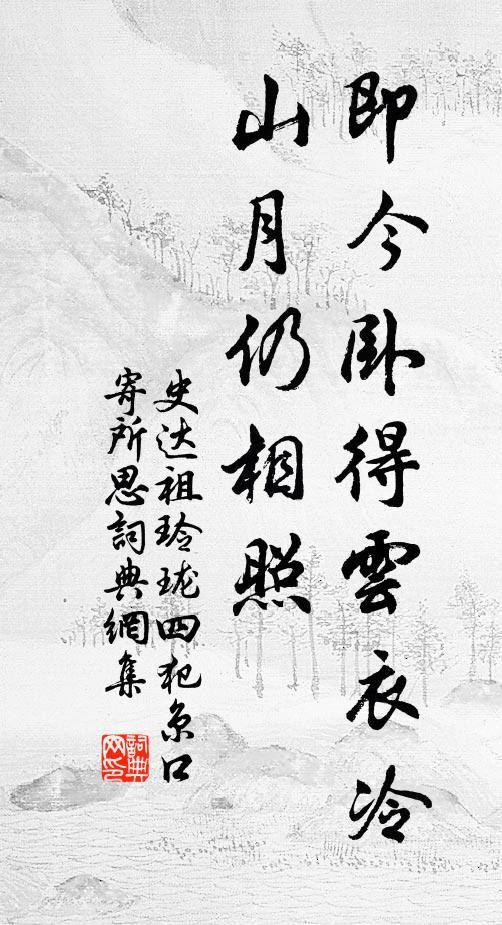 即今卧得雲衣冷
山月仍相照
史达祖玲珑四犯京口
寄所思詞典網集
詞典
网印